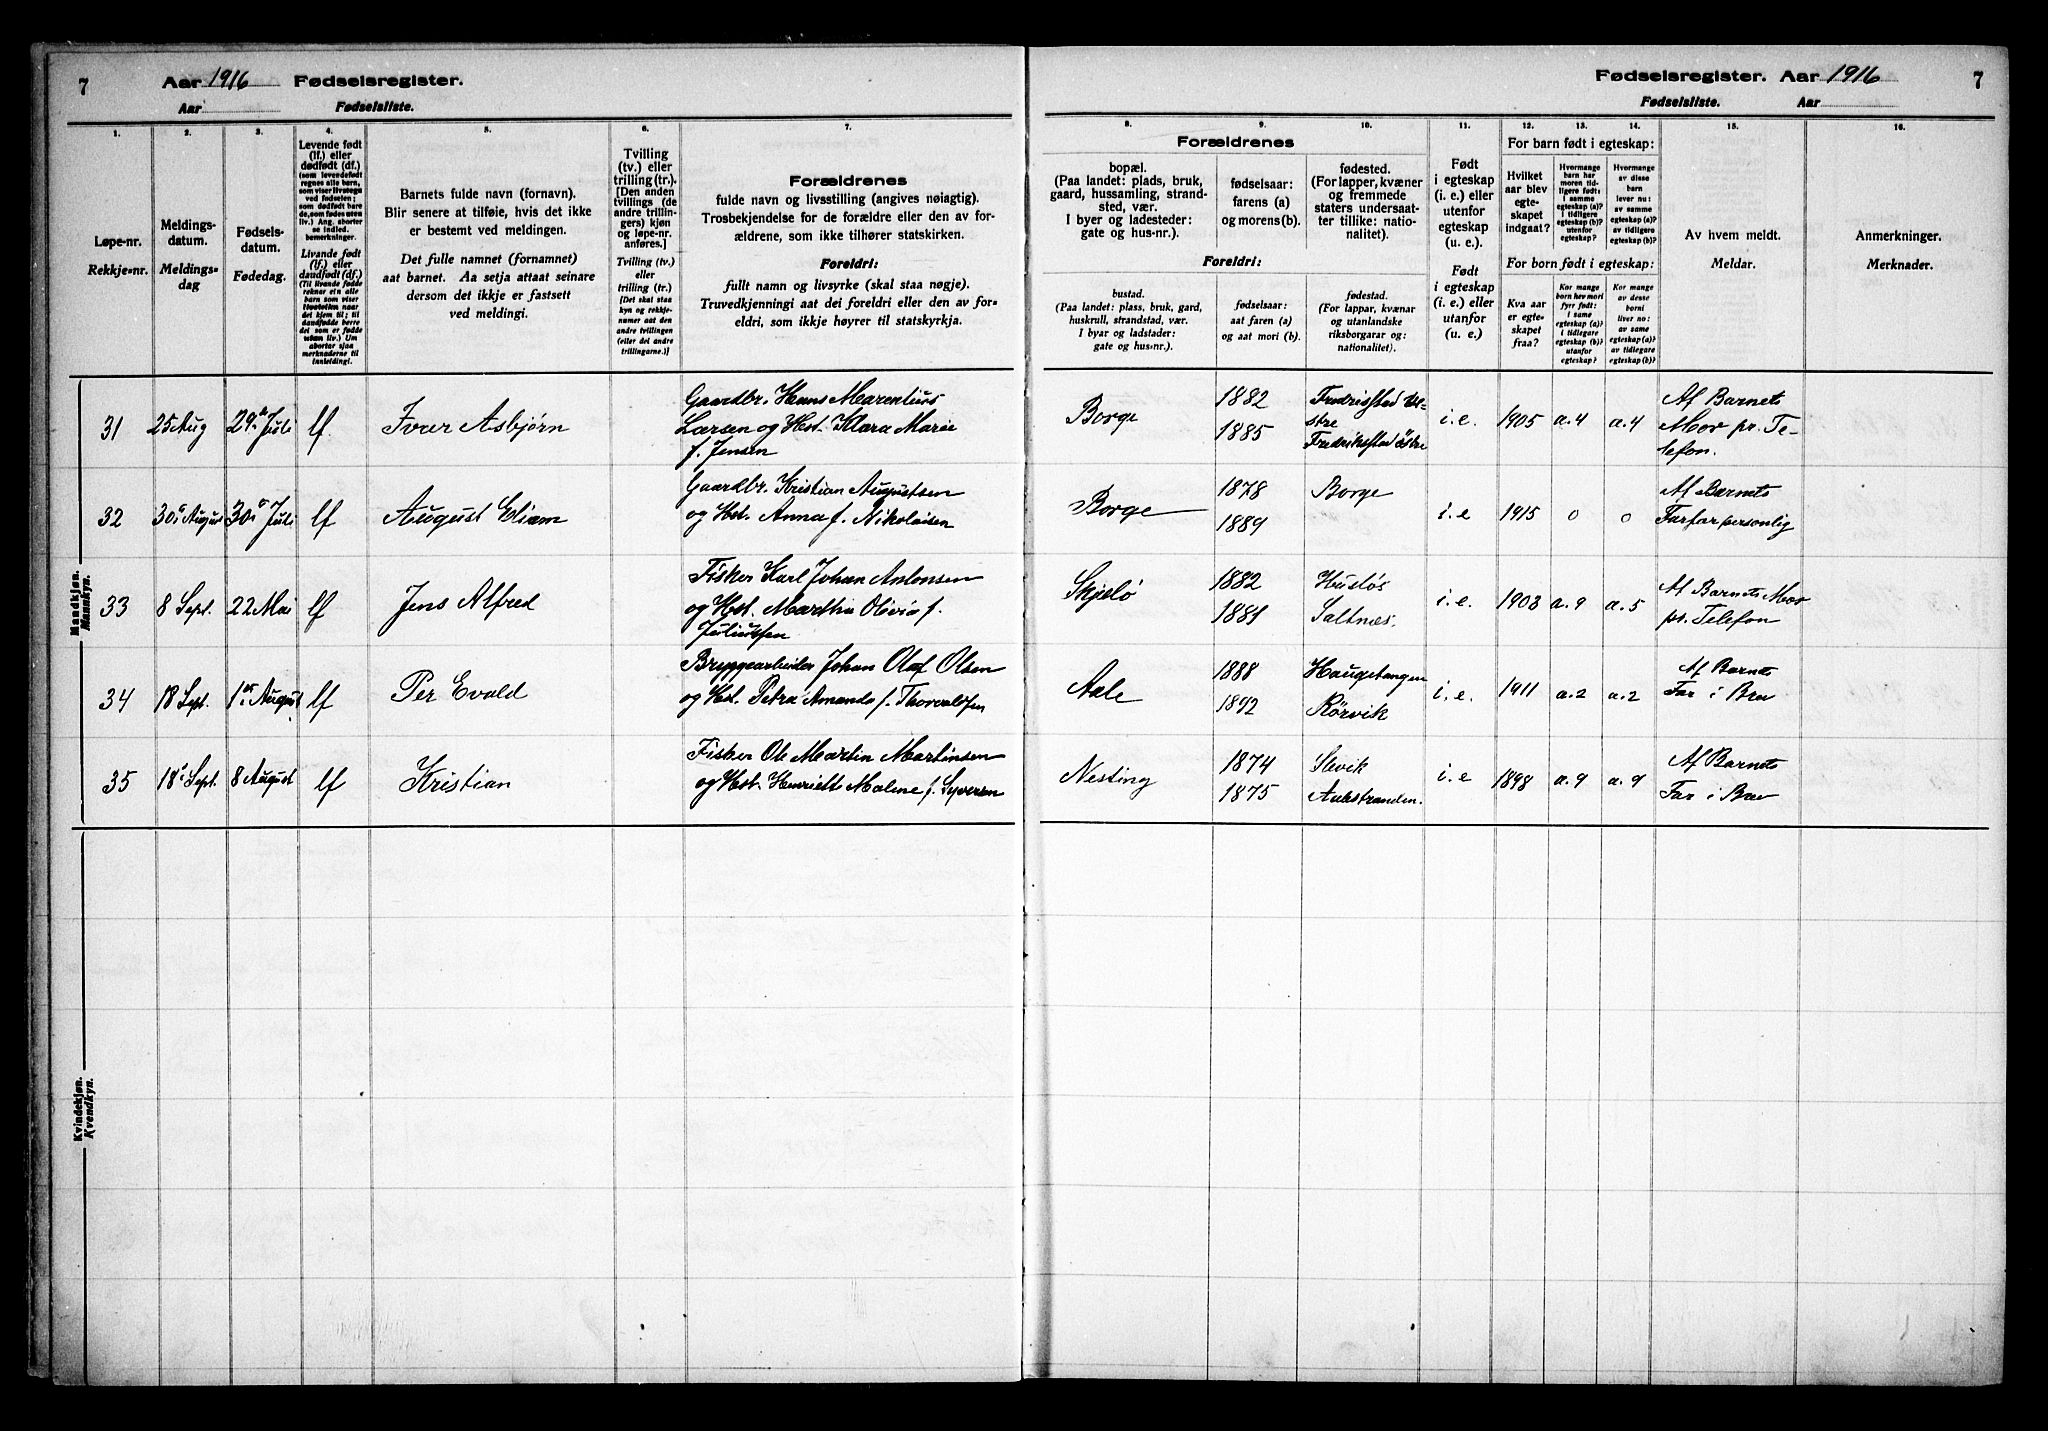 7 Aar 1916 Fødselsregister.
Aar Fødselsliste.
Fødselsregister. Aar 1916 7
Fødselsliste. Aar
1. 2. 3. 4. 5. 6. 7.
Løpe-nr.
Rekkje-nr.
Meldings-
datum.
Meldings-
dag
Fødsels-
datum.
Fødedag.
Levende født
(lf.) eller
dødfødt (df.)
(som levendefødt
regnes alle barn,
som viser livstegn
ved fødselen;
som dødfødt bare
de, som fødes uten
liv.) Ang. aborter
se indled.
bemerkninger.
Livande født
(lf.) eller
daudfødt (df.)
(Til livande fødde
reknar ein alle
barn som viser
livsteikn naar
det kjem til; til
daudfødde berre
dei som er fødde
utan liv.) Um
abortar sjaa
merknaderne til
innleiding).
Barnets fulde navn (fornavn).
Blir senere at tilføie, hvis det ikke
er bestemt ved meldingen.
Det fulle namnet (fornamnet)
aat barnet. Aa setja attaat seinare
dersom det ikkje er fastsett
ved meldingi.
Tvilling
(tv.) eller
trilling (tr.).
[Den anden
tvillings (de
andre trillin-
gers) kjøn
og løpe-nr.
anføres.]
Tvilling (tv.)
eller
trilling (tr.)
[Det skal staa
kyn og rekkje-
numer aat den
andre tvillingen
(eller dei andre
trillingarne.)]
Forældrenes
fulde navn og livsstilling (angives nøiagtig).
Trosbekjendelse for de forældre eller den av for-
ældrene, som ikke tilhører statskirken.
Foreldri:
fullt namn og livsyrke (skal staa nøgje).
Truvedkjenningi aat dei foreldri eller den av for-
eldri, som ikkje høyrer til statskyrkja.
8. 9. 10. 11. 12. 13. 14. 15. 16.
Forældrenes
bopæl.
(Paa landet: plads, bruk,
gaard, hussamling, strand-
sted, vær.
I byer og ladesteder:
gate og hus-nr.).
fødselsaar:
farens (a)
og morens (b).
fødested.
(For lapper, kvæner
og fremmede
staters undersaat-
ter tillike: natio-
nalitet).
Foreldri:
bustad.
(Paa landet: plass, bruk, gard,
huskrull, strandstad, vær.
I byar og ladstader:
gate og hus-nr.).
fødselsaar:
aat faren (a)
og aat mori (b).
fødestad.
(For lappar, kvænar
og utanlandske
riksborgarar og:
nationalitet).
Født
i egteskap
(i. e.) eller
utenfor
egteskap
(u. e.).
Født
i egteskap
(i. e.) eller
utanfor
(u. e.).
For barn født i egteskap:
Hvilket
aar blev
egte-
skapet
indgaat?
Hvormange
barn har
moren tid-
ligere født:
i samme
egteskap (a)?
i tidligere
egteskap (b)?
utenfor
egteskap?
Hvormange
av disse
barn
lever nu:
av samme
egteskap (a)?
av tidligere
egteskap (b)?
For born født i egteskap:
Kva aar
er egte-
skapet
fraa?
Kor mange
born hev mori
fyrr født:
i same
egteskap (a)?
i tidlegare
egteskap (b)?
utanfor
egteskap?
Kor mange
av desse
borni
liver no:
av same
egteskap (a)?
av tidlegare
egteskap (b)?
Av hvem meldt.
Meldar.
Anmerkninger.
Merknader.
Mandkjøn.
Mannkyn.
31 25 Aug 29 Juli lf. Iver Asbjørn
Gaardbr. Hans Marentius
Larsen og Hst. Klara Marie
f. Jensen
Borge 1882 1885
Fredriksstad ve-
stre
Fredriksstad östre
i.e. 1905 a.4 a.4
Af Barnets
Mor pr. Te-
lefon.
32 30 August 30 Juli lf August Eliam
Gaardbr. Kristian Augustsen
og Hst. Anna f. Nikolaisen
Borge 1878 1889 Borge i.e 1915 0 0
Af Barnets
Farfar personlig
33 8 Sept. 22 Mai lf Jens Alfred
Fisker Karl Johan Antonsen
og Hst. Marthia Olivia f.
Juliussen
Skjelö 1882 1881
Husløs
Saltnes.
i.e. 1903 a.9 a.5
Af Barnets Mor
pr. Telefon
34 18 Sept. 1 August lf Per Evald
Bryggearbeider Johan Olaf Olsen
og Hst. Petra Amanda f. Thorvaldsen
Aale 1888 1892
Haugetangen
Rörvik
i.e. 1911 a.2 a.2
Af Barnets
Far i Brev
35 18 Sept. 8 August lf Kristian
Fisker Ole Martin Martinsen
og Hst. Henriette Malene f. Syversen
Nesting 1874 1875
Slevik
i.e 1898 a.9 a.9
Af Barnets
Far i Brev
Kvindekjøn.
Kvendkyn.